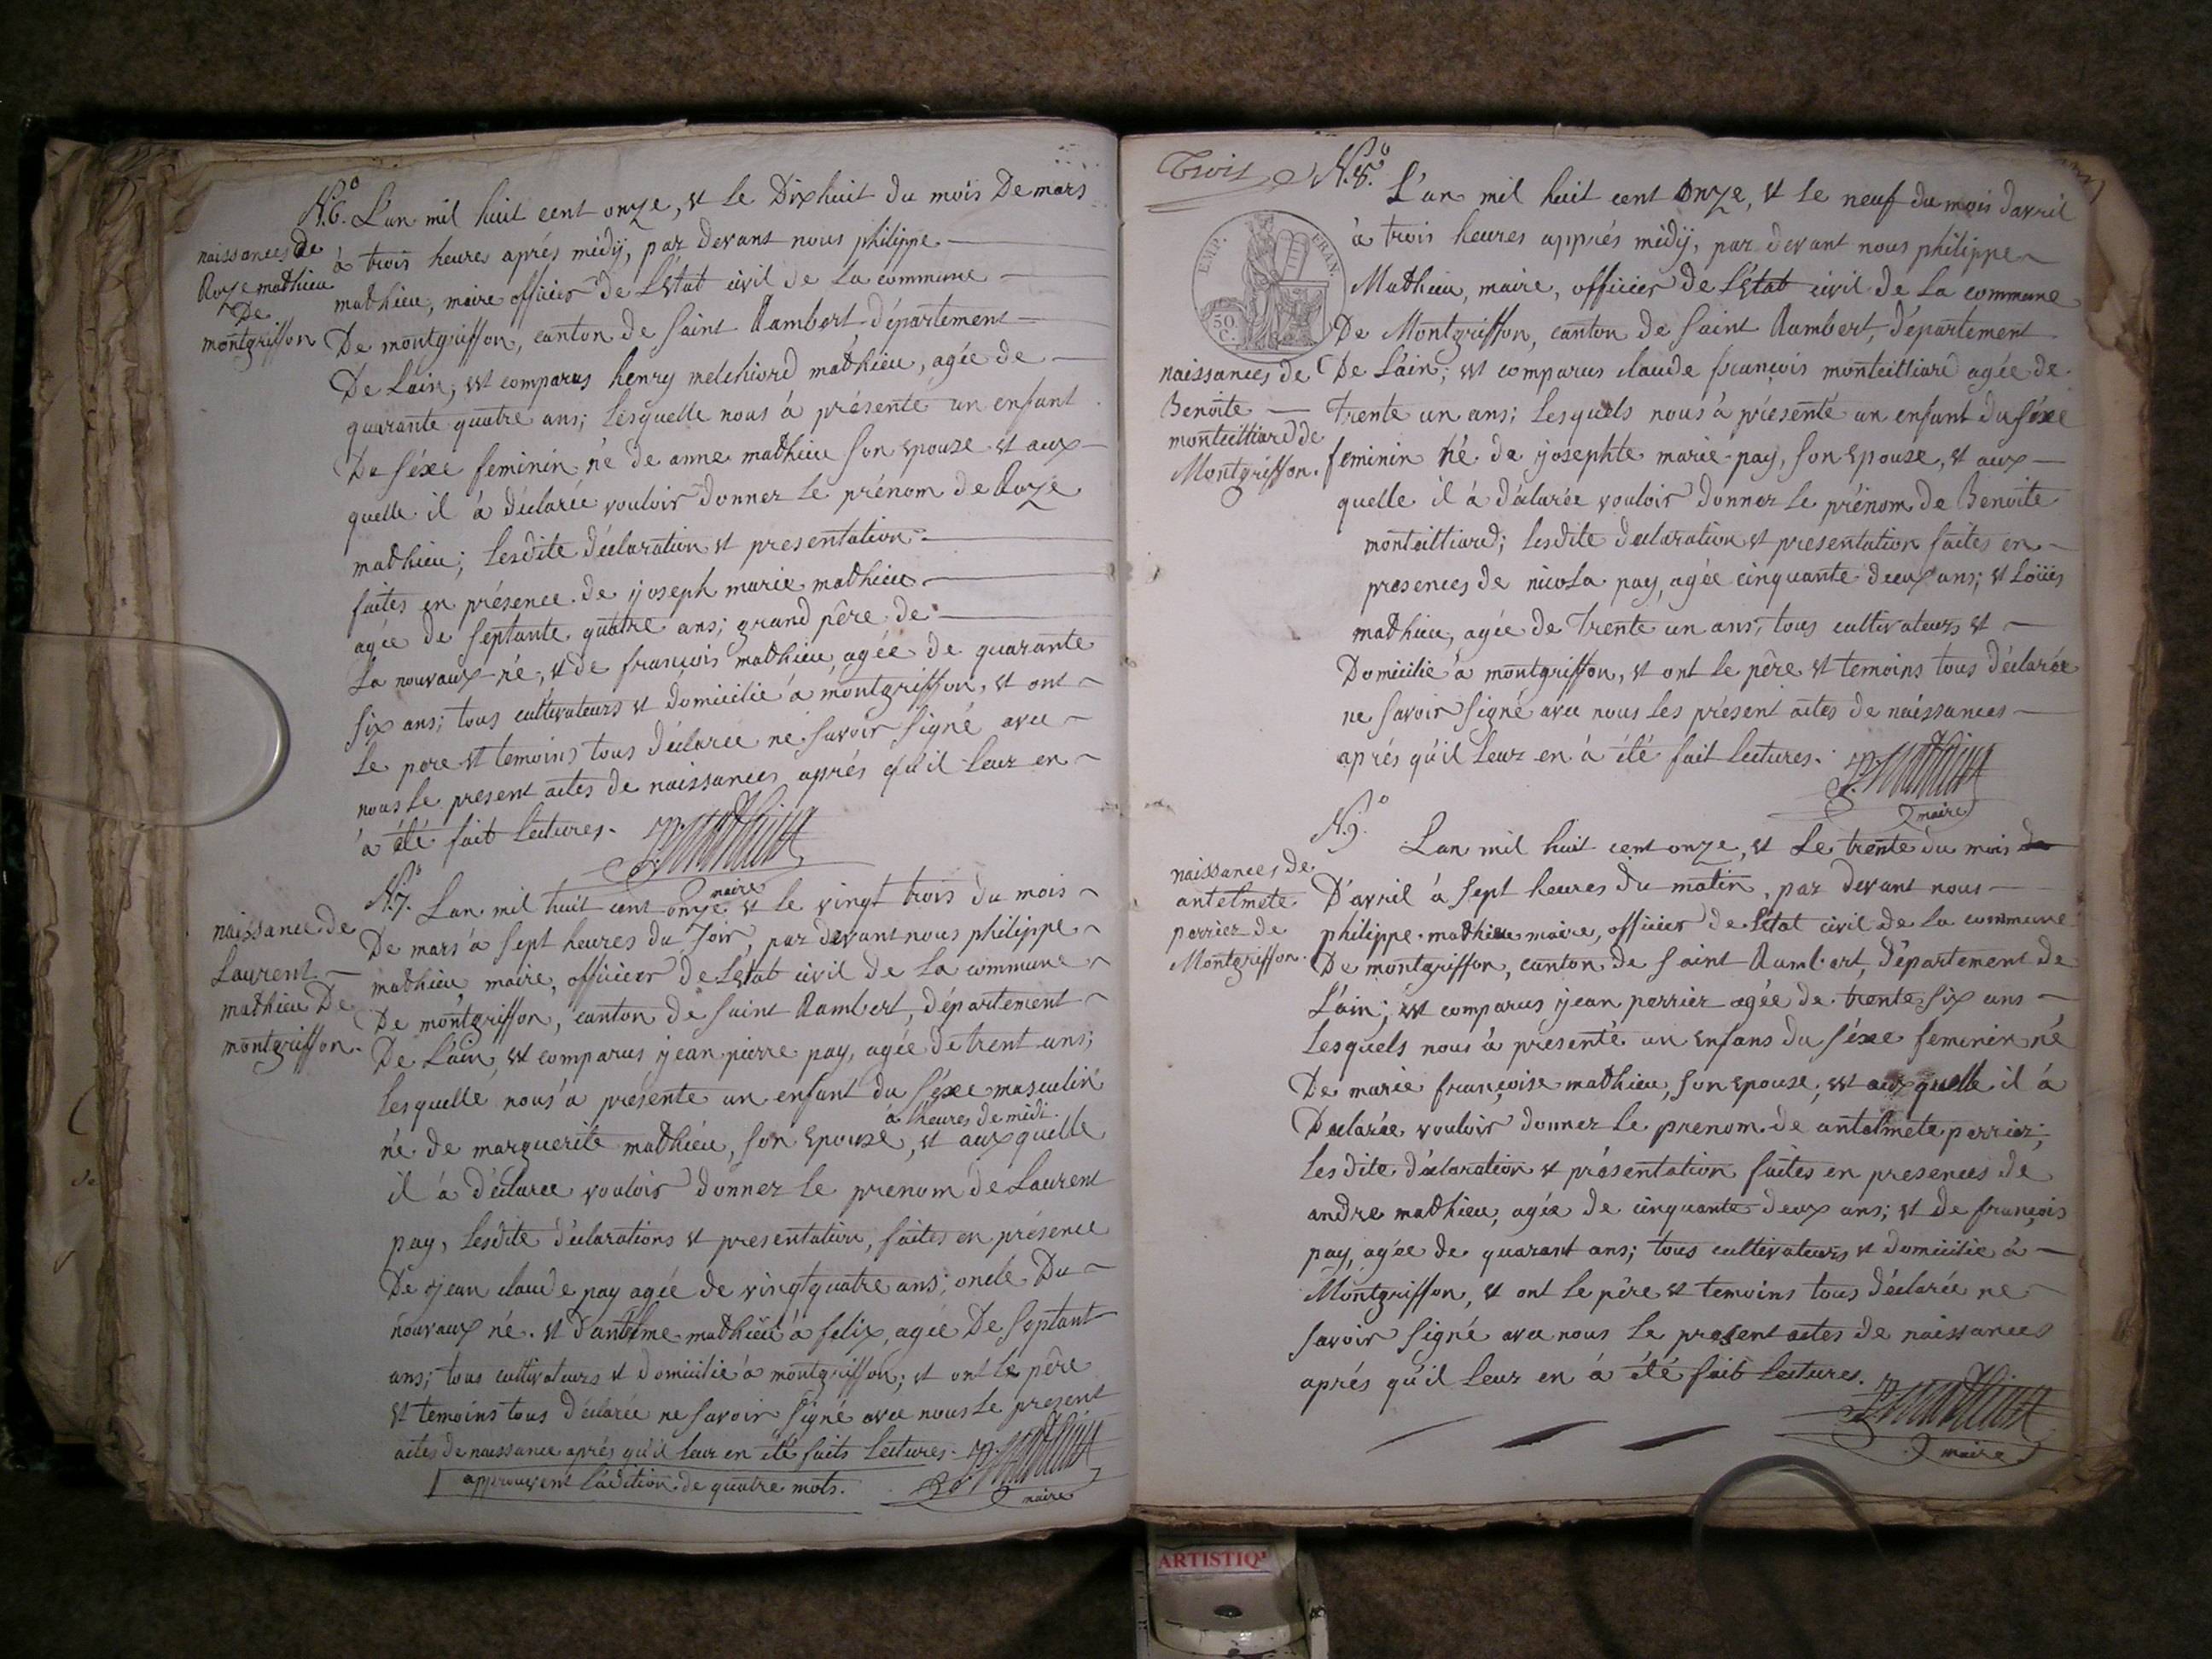 N.º 6. L'an mil huit cent onze, et le Dixhuit du mois De mars
naissances de
Roze mathieu
De
montgriffon
à trois heures aprés midÿ, par devant nous philippe
mathieu, maire officier de L'Etat civil de La commune
De montgriffon, canton de saint Rambert, département
De L'ain; est comparus henry melchiord mathieu, agée de
quarante quatre ans; lesquelle nous à présenté un enfant
Du séxe feminin né de anne mathieu son epouze et aux
quelle il à déclarée vouloir donner le prénom de Roze
mathieu; lesdite déclaration et presentation
faites en présence de joseph marie mathieu
agée de septante quatre ans; grand pêre de
La nouvaux-né, et de françois mathieu agée de quarante
six ans; tous cultivateurs et domicilié à montgriffon, et ont
le pere et temoins tous déclarée ne savoir signé avec
nous le present actes de naissances aprés qu'il leur en
à été fait lectures. P. Mathieu
maire
N.º 7. L'an mil huit cent onze et le vingt trois du mois
naissance de
Laurent
mathieu De
montgriffon.
De mars à sept heures du soir, par devant nous philippe
mathieu maire, officier de L'Etat civil de La commune
De montgriffon, canton de saint Rambert, département
De L'ain, est comparus jean pierre pay, agée de trent ans;
lesquelle nous à presenté un enfant du séxe masculin
à heures de midi.
né de marguerite mathieu, son epouze, et aux quelle
il à déclaree vouloir donner le prenom de Laurent
pay, lesdite déclarations et presentation, faites en présence
De jean claude pay agée de vingt quatre ans; oncle Du
nouvaux né. et d'antelme mathieu à felix, agée De septant
ans; tous cultivateurs et domicilié à montgriffon; et ont le pêre
et temoins tous déclarée ne savoir signé avec nous le present
actes de naissance aprés qu'il leur en été faits lectures. P. Mathieu
approuvent l'adition de quatre mots.
maire
Trois N.º 8. L'an mil huit cent onze, et le neuf du mois davril
EMP. FRAN.
50.
C.
à trois heures apprés midÿ, par devant nous philippe
Mathieu, maire, officier de L'Etat civil de La commune
De Montgriffon, canton de saint Rambert, département
naissances de
Benoite
monteilliard de
Montgriffon.
De L'ain; est comparus claude françois monteilliard agée de
trente un ans; lesquels nous à présenté un enfant du séxe
feminin né de josephte marie pay, son epouze, et aux
quelle il à déclarée vouloir donner le prénom de Benoite
monteilliard; lesdite declaration et presentation faites en
presences de nicola pay, agée cinquante deux ans; et Loüis
mathieu, agée de trente un ans; tous cultivateurs et
Domicilié à montgriffon, et ont le pêre et temoins tous déclarée
ne savoir signé avec nous les présent actes de naissances
aprés qu'il leur en à été fait lectures. P. Mathieu
maire
N.º 9.
L'an mil huit cent onze, et le trente du mois de
naissances de
antelmete
perrier de
Montgriffon.
D'avril à sept heures du matin, par devant nous
philippe mathieu maire, officier de L'état civil de La commune
De montgriffon, canton de saint Rambert, département de
L'ain; est comparus jean perrier agée de trente six ans
lesquels nous à présenté un enfans du séxe feminin né
De marie françoise mathieu, son epouse, et aux quelle il à
Déclarée vouloir donner le prenom de antelmete perrier;
lesdite déclaration et présentation faites en presences de
andre mathieu, agée de cinquante deux ans; et de françois
pay, agée de quarant ans; tous cultivateurs et domicilié à
Montgriffon, et ont le pêre et temoins tous déclarée ne
savoir signé avec nous le present actes de naissances
aprés qu'il leur en à été fait lectures. P. Mathieu
maire
ARTISTIQ